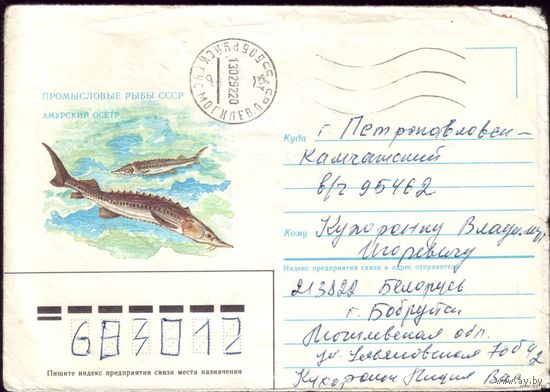 ПРОМЫСЛОВЫЕ РЫБЫ СССР
АМУРСКИЙ ОСЕТР
БОБРУЙСК
130292220
Куда г. Петропавловск-
Камчатский
в/ч 95462
Кому Владимиру
Игоревичу
Индекс предприятия связи и адрес отправителя
213822 Беларусь
г. Бобруйск
Могилевская обл.
ул. Ульяновская
Лидия Вас
683012
Пишите индекс предприятия связи места назначения
www.ay.by